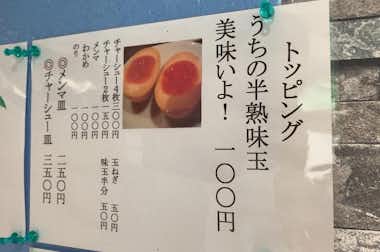 トッピング
うちの半熟味玉
美味いよ！ 一〇〇円
チャーシュー4枚 三〇〇円
チャーシュー2枚 一五〇円
メンマ 一〇〇円
わかめ 一〇〇円
のり 一〇〇円
玉ねぎ 五〇円
味玉半分 五〇円
◎メンマ皿 二五〇円
◎チャーシュー皿 三五〇円